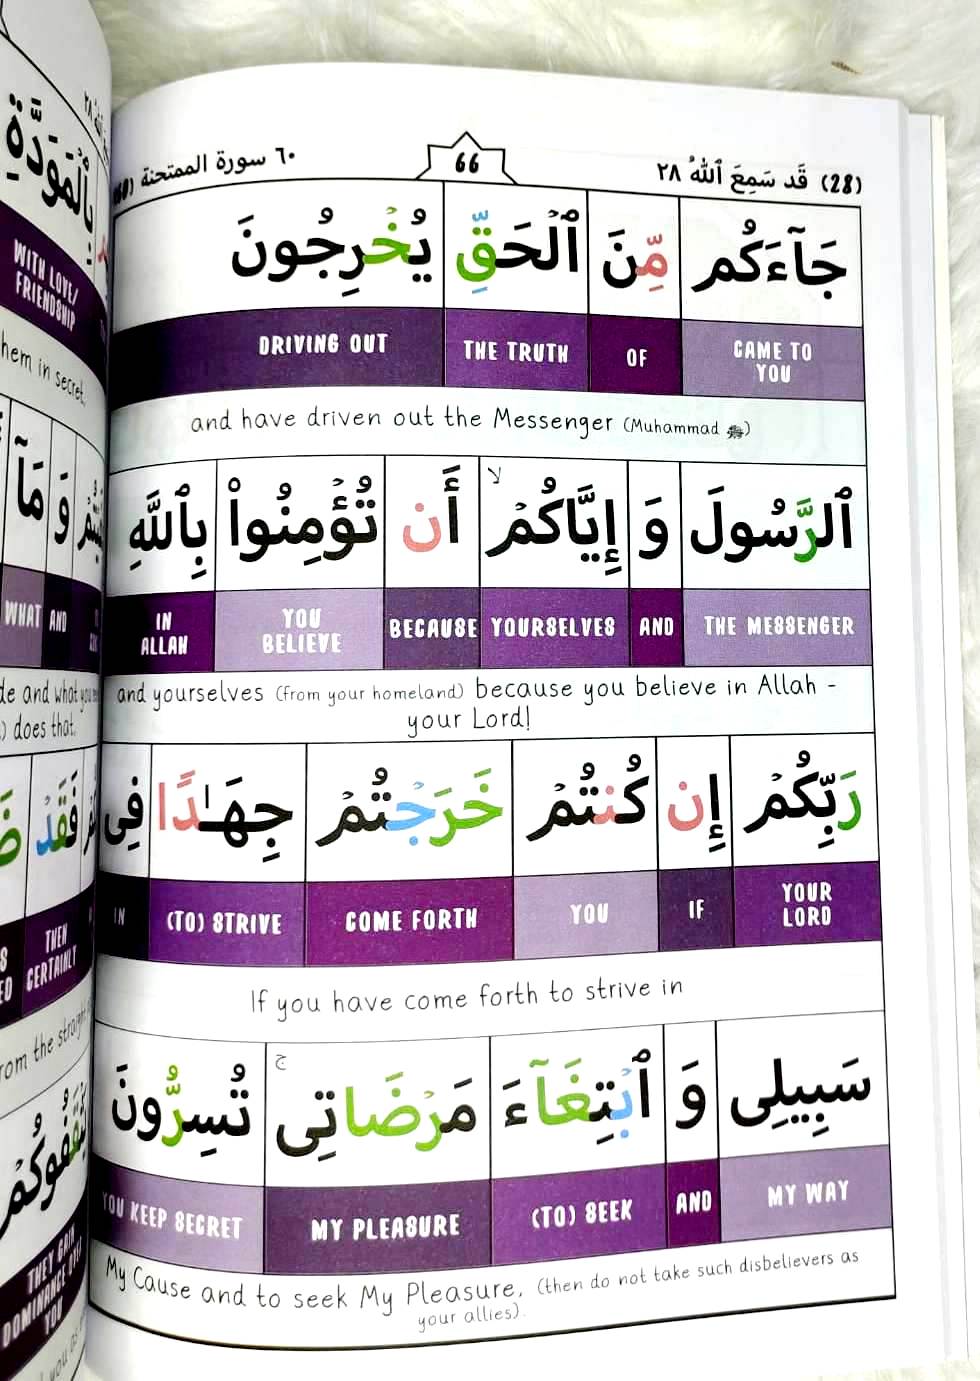 (28) قَد سَمِعَ ٱللَّهُ ٢٨
66
٦٠ سورة الممتحنة
جَآءَكُم مِّنَ ٱلْحَقِّ يُخْرِجُونَ
CAME TO YOU OF THE TRUTH DRIVING OUT
and have driven out the Messenger (Muhammad ﷺ)
ٱلرَّسُولَ وَ إِيَّاكُمْ ۙ أَن تُؤْمِنُوا۟ بِٱللَّهِ
THE MESSENGER AND YOURSELVES BECAUSE YOU BELIEVE IN ALLAH
and yourselves (from your homeland) because you believe in Allah -
your Lord!
رَبِّكُمْ إِن كُنتُمْ خَرَجْتُمْ جِهَـٰدًا فِى
YOUR LORD IF YOU COME FORTH (TO) STRIVE IN
If you have come forth to strive in
سَبِيلِى وَ ٱبْتِغَآءَ مَرْضَاتِى ۚ تُسِرُّونَ
MY WAY AND (TO) SEEK MY PLEASURE YOU KEEP SECRET
My Cause and to seek My Pleasure, (then do not take such disbelievers as
your allies).
بِٱلْمَوَدَّةِ
WITH LOVE/
FRIENDSHIP
hem in secret.
وَ مَآ
AND WHAT
de and what you
) does that.
فَقَدْ
THEN
CERTAINLY
rom the straight
THEY GAIN
DOMINANCE OVER
YOU